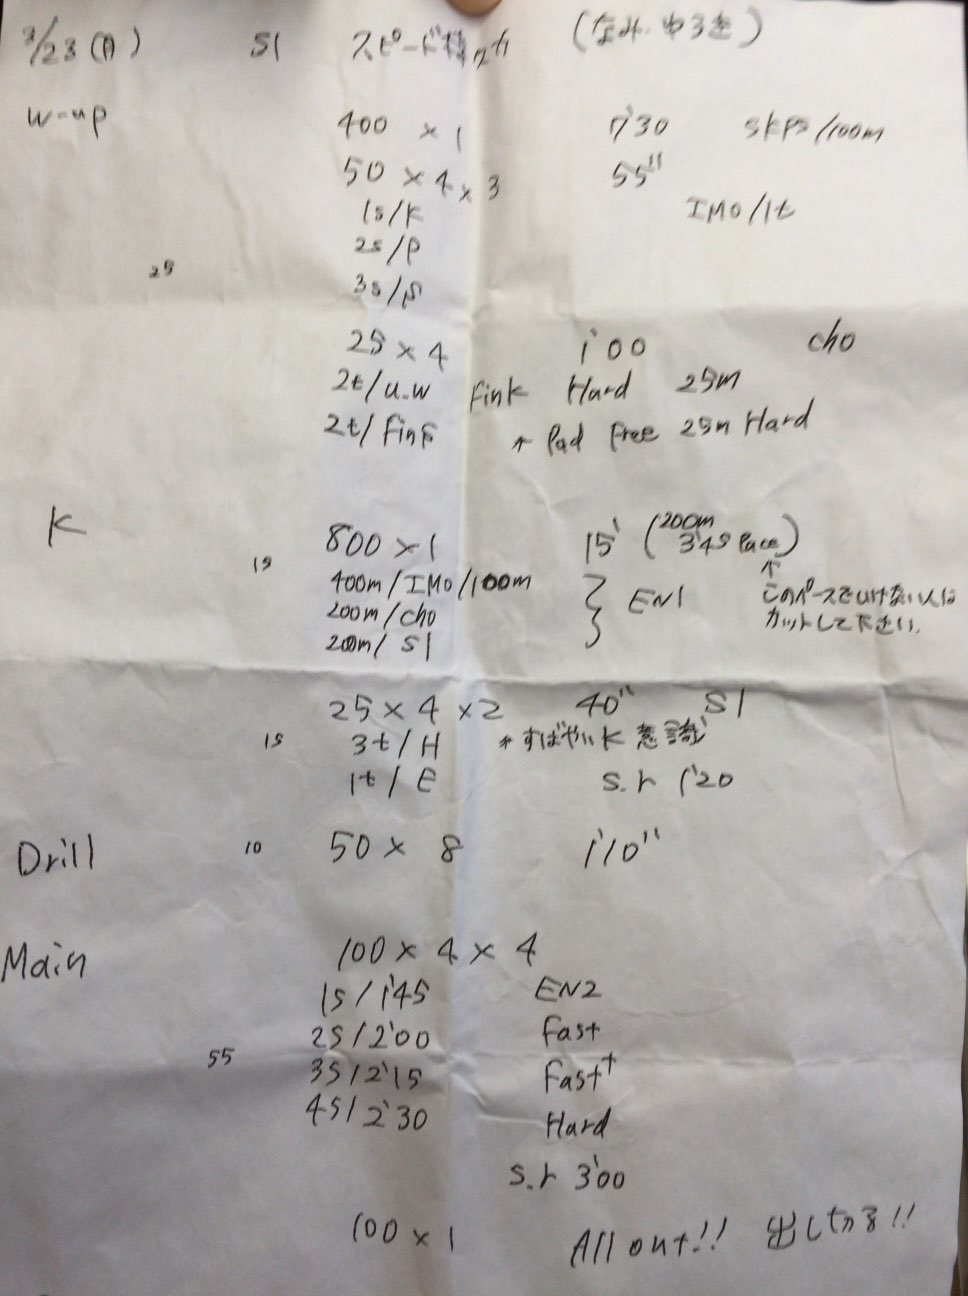 3/23(月) S1 スピード持久力 (なみ・ゆうき)
w-up 400 × 1 7'30 SKPS/100m
50 × 4 × 3 55"
1s/K IMO/1t
2s/P
25
3s/S
25 × 4 1'00 cho
2t/u.w Fink Hard 25m
2t/Fins + Pad Free 25m Hard
K 800 × 1 15' (200m 3'45 Pace)
15 400m/IMO/100m ↑
200m/cho } EN1 このペースでいけない人は
200m/S1 カットして下さい.
25 × 4 × 2 40" S1
15 3t/H * すばやいK 意識
1t/E S.r 1'20
Drill 10 50 × 8 1'10"
Main 100 × 4 × 4
1S/1'45 EN2
2S/2'00 Fast
55 3S/2'15 Fast+
4S/2'30 Hard
S.r 3'00
100 × 1 All out!! 出し切る!!